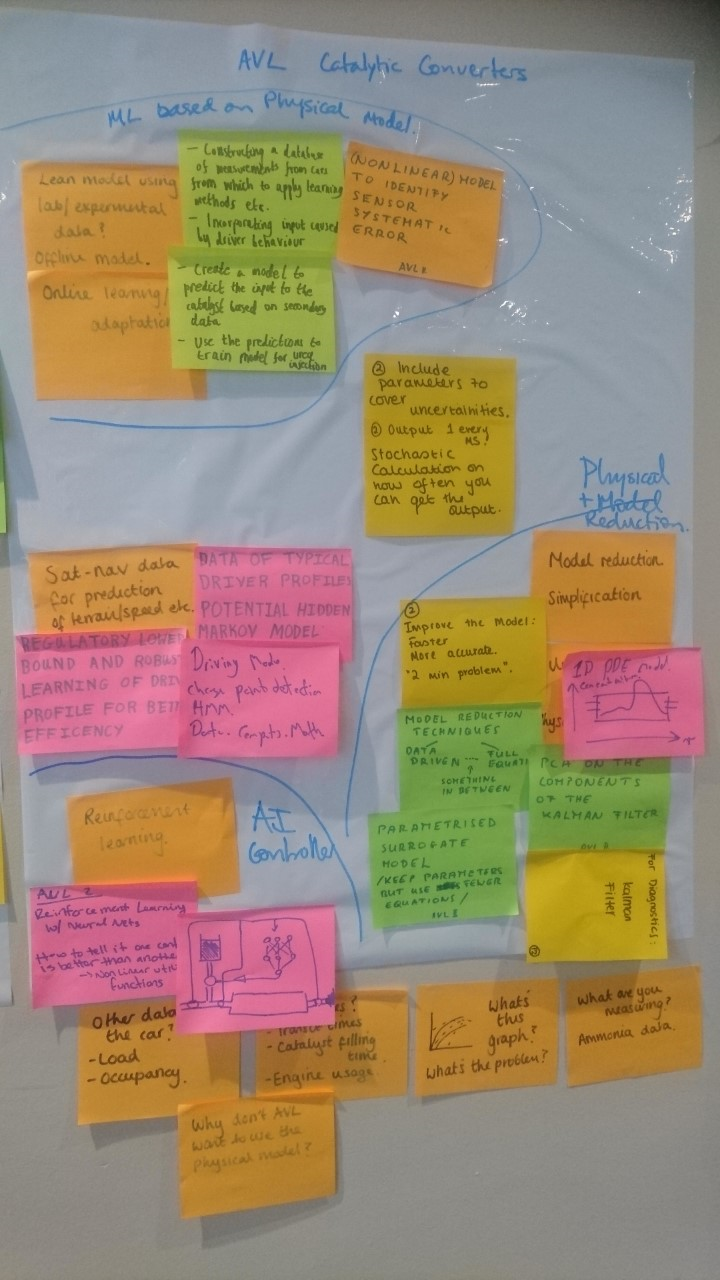 AVL Catalytic Converters
ML based on Physical Model.
Lean model using
lab/experimental
data?
Offline model.
- Constructing a database
of measurements from cars
from which to apply learning
methods etc.
- Incorporating input caused
by driver behaviour
(NONLINEAR) MODEL
TO IDENTIFY
SENSOR
SYSTEMATIC
ERROR
AVL
Online learning/
adaptation
- Create a model to
predict the input to the
catalyst based on secondary
data
- Use the predictions to
train model for urea
injection
② Include
parameters to
cover
uncertainities.
② Output 1 every
MS!
Stochastic
Calculation on
how often you
can get the
output.
Physical
+ Model
Reduction.
Sat-nav data
for prediction
of terrain/speed etc.
DATA OF TYPICAL
DRIVER PROFILES
POTENTIAL HIDDEN
MARKOV MODEL
REGULATORY LOWER
BOUND AND ROBUST
LEARNING OF DRIV
PROFILE FOR BETT
EFFICENCY
Driving Mode.
change point detection
HMM.
Data. Compats. Math
Model reduction.
Simplification
②
Improve the Model:
faster
More accurate.
"2 min problem".
1D PDE model.
Concentration
MODEL REDUCTION
TECHNIQUES
DATA
DRIVEN .... FULL
EQUATI
SOMETHING
IN BETWEEN
PCA ON THE
COMPONENTS
OF THE
KALMAN FILTER
PARAMETRISED
SURROGATE
MODEL
/KEEP PARAMETERS
BUT USE FEWER
EQUATIONS/
AVL
For Diagnostics:
Kalman
Filter
②
Reinforcement
learning.
AI
Controller
AVL 2
Reinforcement Learning
w/ Neural Nets
How to tell if one cont
is better than another
→ Nonlinear util
functions
Other data
the car?
- Load
- Occupancy.
times
- Catalyst filling
time.
- Engine usage.
What's
this
graph?
What's the problem?
What are you
measuring?
Ammonia data.
Why don't AVL
want to use the
physical model?